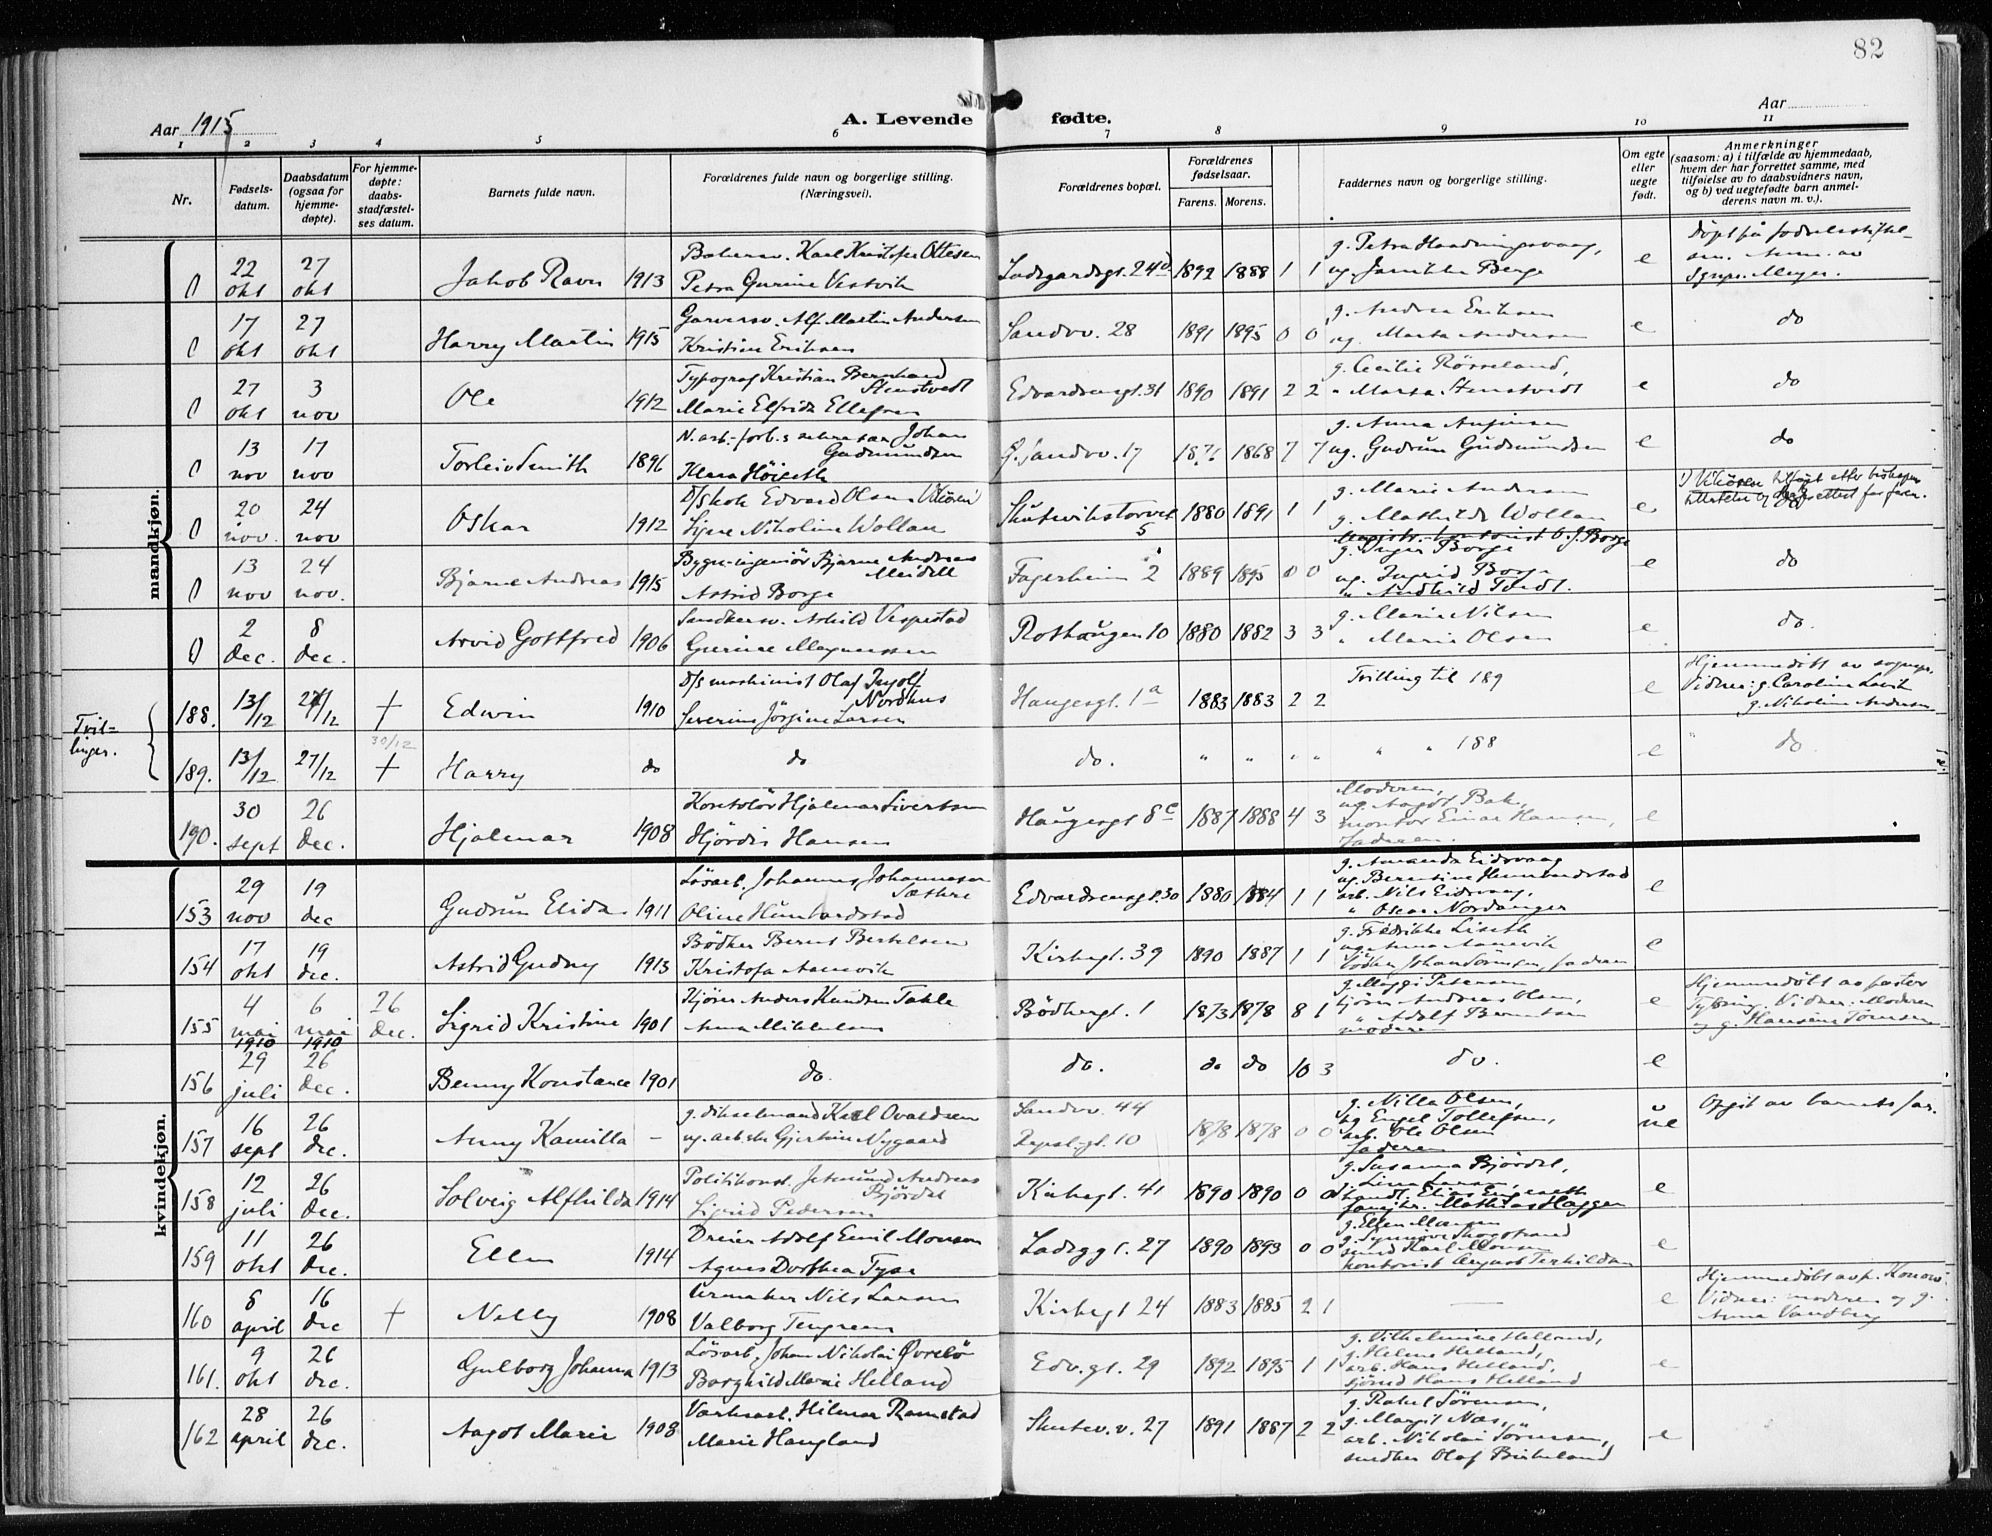 82
Aar 1915
A. Levende fødte.
Aar
1 2 3 4 5 6 7 8 9 10 11
Nr.
Fødsels-
datum.
Daabsdatum
(ogsaa for
hjemme-
døpte).
For hjemme-
døpte:
daabs-
stadfæstel-
ses datum.
Barnets fulde navn.
Forældrenes fulde navn og borgerlige stilling.
(Næringsvei).
Forældrenes bopæl.
Forældrenes
fødselsaar.
Farens. Morens.
Faddernes navn og borgerlige stilling.
Om egte
eller
uegte
født.
Anmerkninger
(saasom: a) i tilfælde av hjemmedaab,
hvem der har forrettet samme, med
tilføielse av to daabsvidners navn,
og b) ved uegtefødte barn anmel-
derens navn m. v.).
mandkjøn.
0 22 okt 27 okt Jakob Ravn 1913
Karl Kristofer Ottesen
Petra Gurine Vestvik
Ladegaardsgt. 24 1892 1888 1 1
g. Petra
ug. Berge
e
Døpt paa fødselsstiftel-
sen. Anm. av
sgnpr. Meyer.
0 17 okt 27 okt Harry Martin 1915
Garversv. Alf Martin Andersen
Kristine Eriksen
Sandvv. 28 1891 1895 0 0
g. Andrea Eriksen
ug. Marta Andersen
e do
0 27 okt 3 nov Ole 1912
Typograf Kristian Bernhard
Stenstvedt
Marie Elfrida Ellefsen
Edvardsensgt. 31 1890 1891 2 2
g. Cecilie
" Marta Stenstvedt
e do
0 13 nov 17 nov Torleiv Smith 1896
N. arb.-forb.s sekretær Johan
Gudmundsen
Klara
Ø. Sandvv. 17 1868 7 7
g. Anna
ug. Gudrun Gudmundsen
e do
0 20 nov. 24 nov Oskar 1912
D/S kok Edvard Olsen
Signe Nikoline Wollan
Skutevikstorvet
5
1880 1891 1 1
g. Marie Andersen
g. Mathilde Wollan
e
0 13 nov 24 nov. Bjarne Andreas 1915
Bygn.-ingeniør Bjarne Andreas
Meidell
Astrid Borge
Fagerheim 2 1889 1895 0 0
g. Inger Borge
ug. Ingrid Borge
e do
0 2 dec. 8 dec. Arvid Gottfred 1906
Vespestad
Gurine Magnussen
Rothaugen 10 1880 1882 3 3
g. Marie Nilsen
" Maria Olsen
e do.
Tvil-
linger.
188. 13/12 27/12 + Edwin 1910
D/S maskinist Olaf Ingolf
Nordhus
Severine Jörgine Larsen
Haugesgt. 1a 1883 1883 2 2
Tvilling til 189
e
Hjemmedöbt av sognepr.
Vidner: g. Caroline Lavik
g. Nikoline Andersen
189. 13/12 27/12 30/12 + Harry do do do. " " " " " " 188 e " do.
190. 30 sept 26 dec. Hjalmar 1908
Kontolör Hjalmar Sivertsen
Hjördis Hansen
Haugesgt 8c 1887 1888 4 3
Moderen,
ug. Aagot Bak,
montør Einar Hansen,
faderen.
e
kvindekjøn.
153 29 nov 19 dec Gudrun Elida 1911
Lösarb. Johannes Johannesen
Sæthre
Oline
Edvardsensgt. 30 1880 1884 1 1
g. Amanda Eidsvaag
ug. Berentine
arb. Nils Eidsvaag,
" Oscar Nordanger
e
154 17 okt 19 dec. Astrid Gudny 1913
Bödker Bernt Bertelsen
Kristofa Aanevik
Kirkegt. 39 1890 1887 1 1
g. Fredrikke Liseth
ug. Anna Aanevik
bödker Johan Sörensen, faderen
e
155 4 mai 1910 6 mai 1910 26 dec. Sigrid Kristine 1901
Kjörer Anders Knudsen Takle
Anna Mikkelsen
Bödkergt. 1 1873 1878 8 1
g. Maggi Petersen
kjörer Andreas Olsen,
" Adolf Berentsen
moderen
e
Hjemmedöbt av pastor
Vidner: Moderen
og g. Hansine
156 29 juli 26 dec. Benny Konstance 1901 do. do. do do 10 3 do. e
157 16 sept 26 dec. Anny Kamilla –
g. Karl Ovaldsen
ug. arb.ske Gjertine Nygaard
Sandvv. 44
gt. 10
1878 1878 0 0
g. Nilla Olsen,
ug Engel Tollefsen,
arb. Ole Olsen
faderen
ue
Opgit av barnets far.
158 12 juli 26 dec. Solveig Alfhilda 1914
Politikonst. Jetmund Andreas
Bjørdal
Sigrid Pedersen
Kirkegt. 41 1890 1890 0 0
g. Susanna Bjørdal,
g. Lina Larsen,
handl. Elias
Mathias Haggen
e
159 11 okt 26 dec. Ellen 1914
Dreier Adolf Emil Monsen
Agnes Dorthea
Ladeggt. 27 1890 1893 0 0
g. Ellen Monsen
g. Synnöve
smed Karl Monsen
kontorist August Terkildsen
e
160 8 april 16 dec + Nelly 1908
Urmaker Nils Larsen
Valborg Tengreen
Kirkegt 24 1883 1885 2 1 — e
Hjemmedöbt av p. Konow.
Vidner: moderen og g.
Anna Vandberg
161. 9 okt 26 dec. Gulborg Johanna 1913
Lösarb. Johan Nikolai
Borghild Marie Helland
Edv.gt. 29 1892 1895 1 1
g. Vilhelmine Helland,
g. Helene Helland,
arb. Hans Helland,
sjömd Hans Helland
e
162 28 april 26 dec. Aagot Marie 1908
Verksarb. Hilmar Ramstad
Marie Haugland
Skutev.v. 27 1891 1887 2 2
g. Rakel Sörensen,
g. Margit Næs,
arb. Nikolai Sörensen,
snedker Olaf Birkeland
e